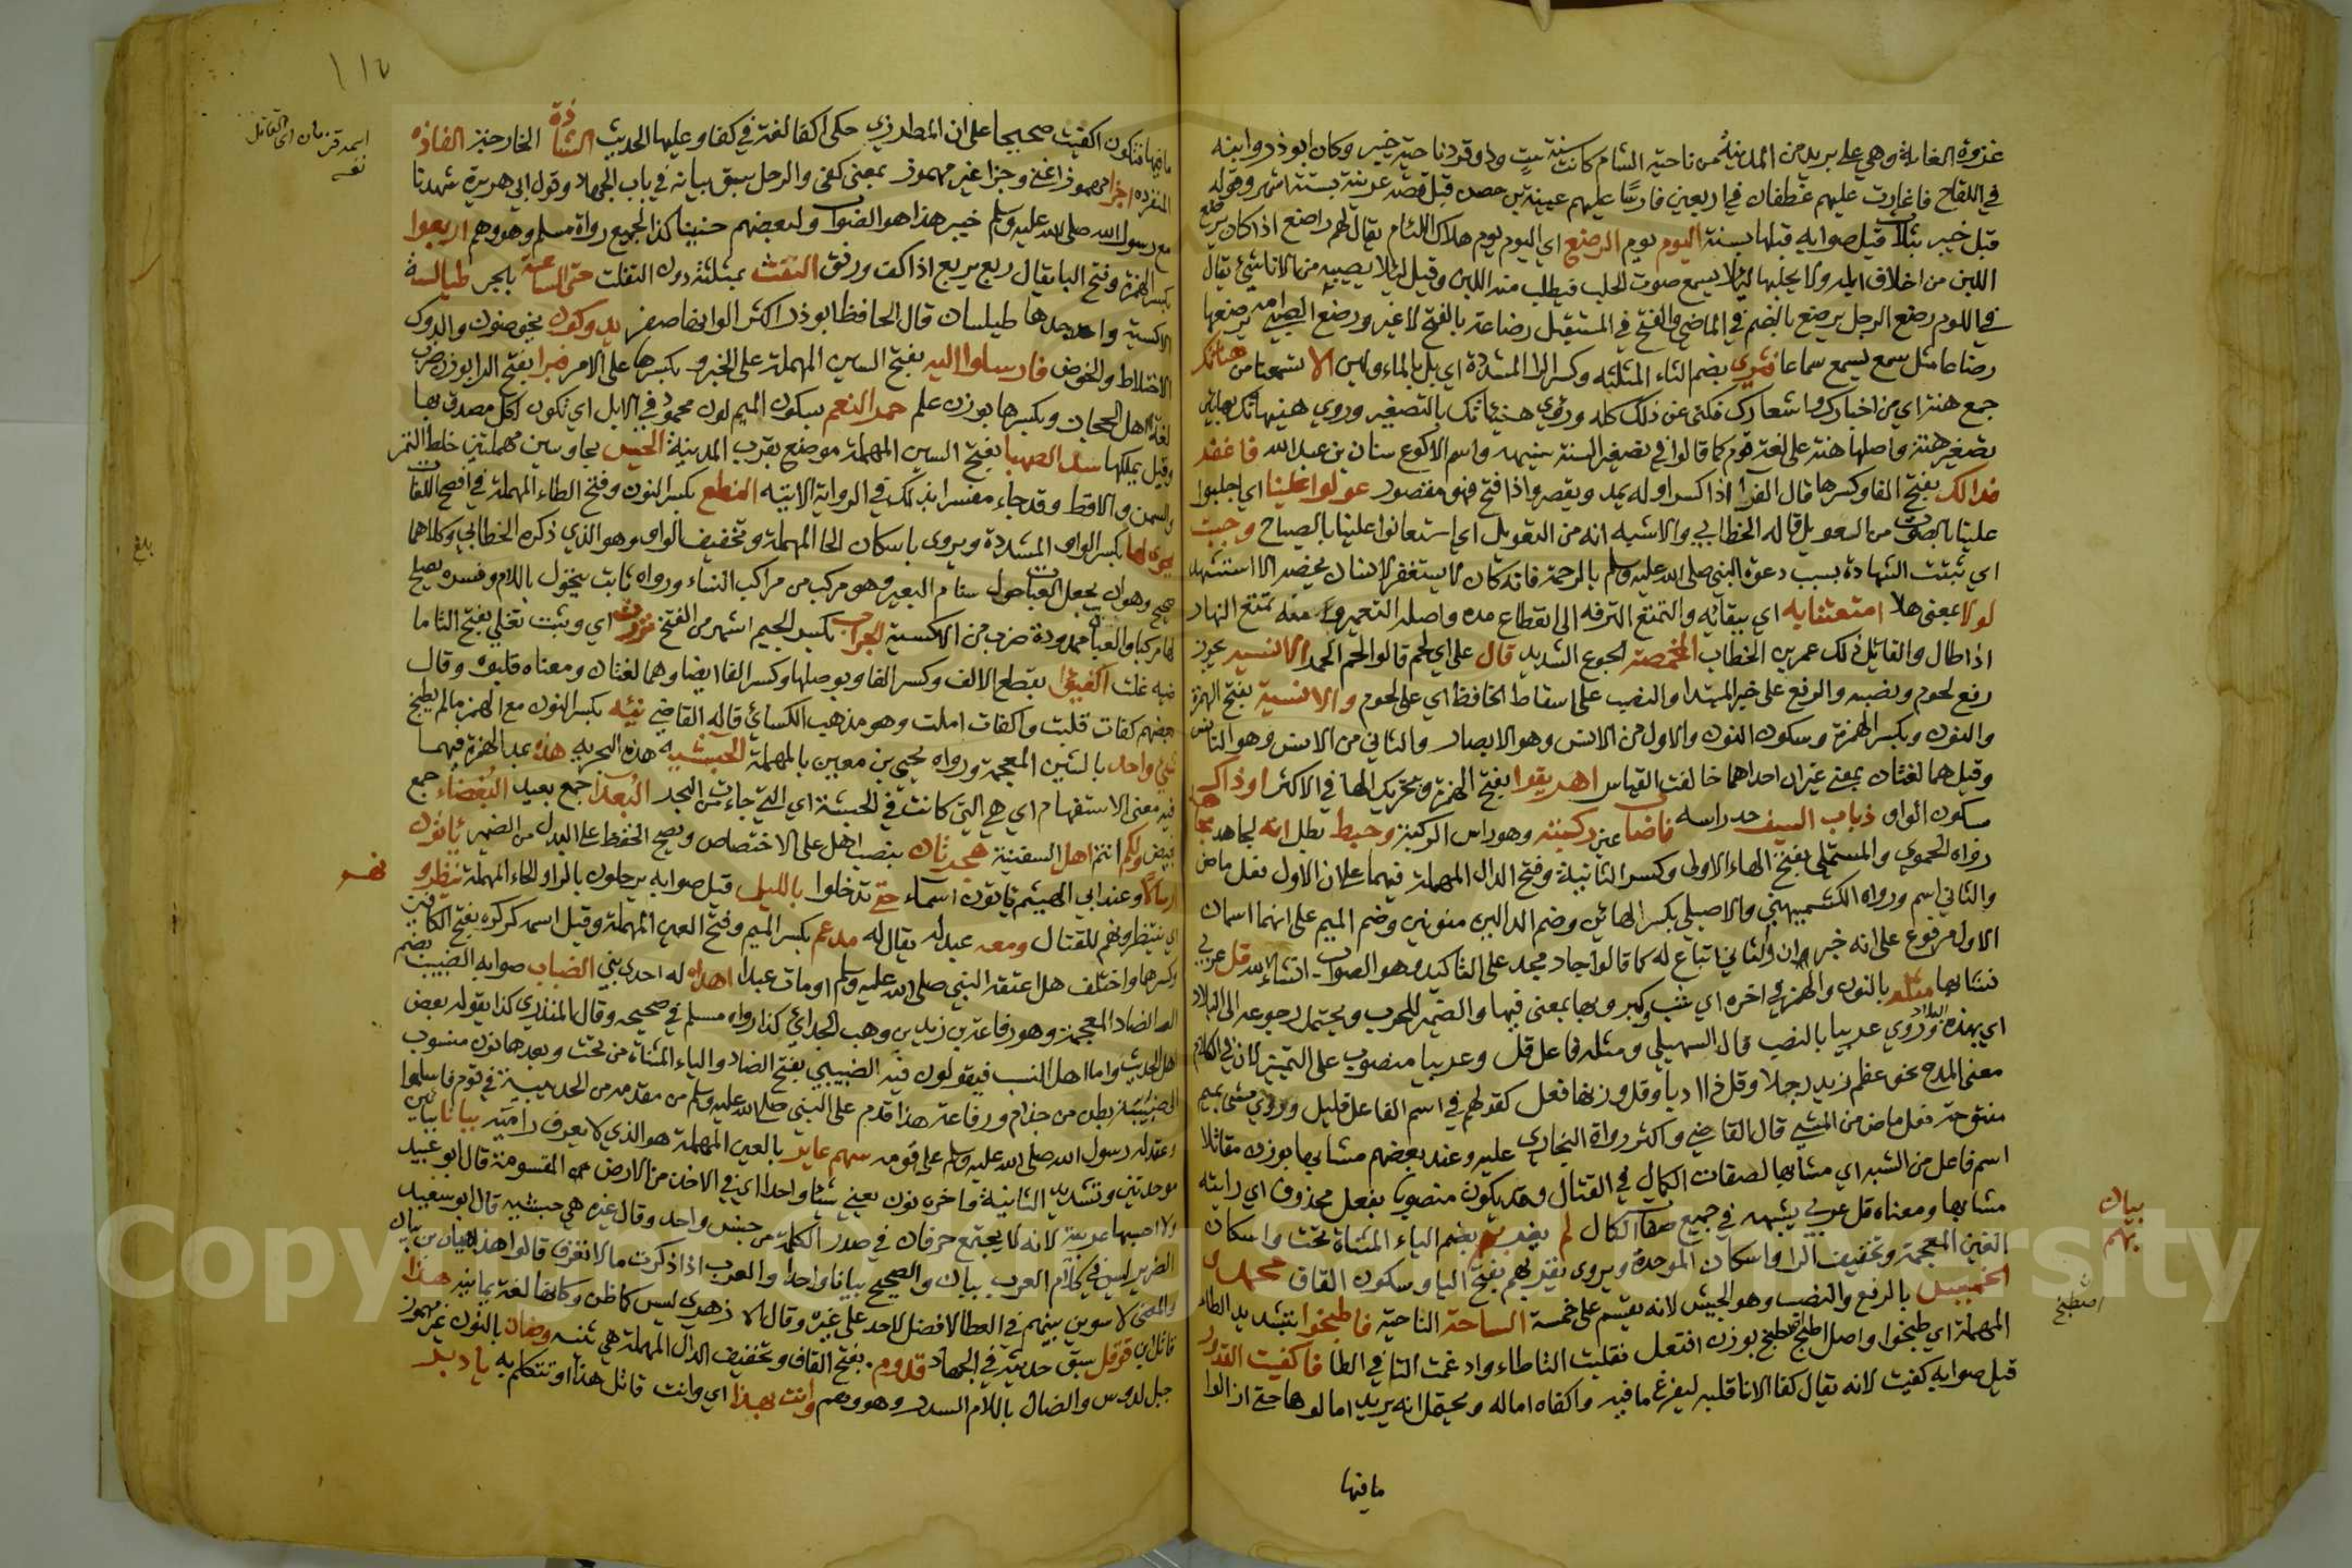 غزوة الغابة وهي على بريد من المدينة من ناحية الشام كانت سنة ست وذو قرد ناحية خيبر وكان ابو ذر وابنه
في اللقاح فاغارت عليهم غطفان في اربعين فارسا عليهم عيينة بن حصن قبل قصة عرينة بستة اشهر وقوله
قبل خيبر بثلاث قيل صوابه قبلها بسنة اليوم يوم الرضع اي اليوم يوم هلاك اللئام يقال لهم راضع اذا كان يرضع
اللبن من اخلاف ابله ولا يحلبها لئلا يسمع صوت الحلب فيطلب منه اللبن وقيل لئلا يصيبه من الاناشئ يقال
في اللوم رضع الرجل يرضع بالضم في الماضي والفتح في المستقبل رضاعة بالفتح لا غير ورضع الصبي امه يرضعها
رضاعا مثل سمع يسمع سماعا فثري بضم الثاء المثلثه وكسر الرا المشددة اي بل بالماء ولين الا تسمعنا من هناتك
جمع هنة اي من اخبارك واشعارك فكنى عن ذلك كله وروي هنياتك بالتصغير وروي هنيهاتك بهائين
تصغير هنة واصلها هنة على لغة قوم كما قالوا في تصغير السنة سنيهة واسم الاكوع سنان بن عبد الله فاغفر
فدا لك بفتح الفا وكسرها قال الفرا اذا كسر اوله يمد ويقصر واذا فتح فهو مقصور عولوا علينا اي اجلبوا
علينا بالصوت من العويل قاله الخطابي والاشبه انه من التعويل اي استعانوا علينا بالصياح وجبت
اي ثبتت الشهادة بسبب دعوة النبي صلى الله عليه وسلم بالرحمة فانه كان لا يستغفر لانسان يخصه الا استشهد
لولا بمعنى هلا امتعتنا به اي ببقائه والتمتع الترفه الى انقطاع مده واصله التعمير ومنه تمتع النهار
اذا طال والقائل ذلك عمر بن الخطاب المخمصة الجوع الشديد قال على اي لحم قالوا لحم الحمر الانسيه يجوز
رفع لحوم ونصبه والرفع على خبر المبتدا والنصب على اسقاط الخافظ اي على لحوم والانسية بفتح الهمزة
والنون وبكسر الهمزة وسكون النون والاول من الانس وهو الابصار والثاني من الانس وهو التانس
وقيل هما لغتان بمعنى غير ان احداهما خالفت القياس اهريقوا بفتح الهمزة وتحريك الها في الاكثر او ذاك
سكون الواو ذباب السيف حد راسه فاصاب عين ركبته وهو راس الركبة وحبط بطل انه لجاهد مجاهد
رواه الحموي والمستملي بفتح الهاء الاولى وكسر الثانية وفتح الدال المهملة فيهما على ان الاول فعل ماض
والثاني اسم ورواه الكشميهني والاصيلي بكسر الهائين وضم الدالين منونين وضم الميم على انهما اسمان
الاول مرفوع على انه خبر ان والثاني اتباع له كما قالوا جاد مجد على التاكيد وهو الصواب ان شاء الله قل عربي
نشا بها مثله بالنون والهمز في اخره اي شب وكبر وبها بمعنى فيها والضمير للحرب ويحتمل رجوعه الى البلاد
اي بهذه البلاد وروي عربيا بالنصب قال السهيلي ومثله فاعل قل وعربيا منصوب على التمييز لان في الكلام
معنى المدح نحو عظم زيد رجلا وقل ذا ادبا وقل وزنها فعل كقولهم في اسم الفاعل قليل وروي مشى بميم
مفتوحة فعل ماض من المشي قال القاضي واكثر رواة البخاري عليه وعند بعضهم مشابها بوزن مقاتلا
اسم فاعل من الشبه اي مشابها لصفات الكمال في القتال وقد يكون منصوبا بفعل محذوف اي رايته
مشابها ومعناه قل عربي يشبهه في جميع صفات الكمال لم يغربهم بضم الياء المثناة تحت واسكان
الغين المعجمة وتخفيف الرا واسكان الموحدة ويروى يقربهم بفتح اليا وسكون القاف محمد و
الخميس بالرفع والنصب وهو الجيش لانه يقسم على خمسة الساحة الناحية فاطبخوا بتشديد الطاء
المهملة اي طبخوا واصل اطبخ اطتبخ بوزن افتعل فقلبت التا طاء وادغمت التا في الطا فاكفيت القدور
قيل صوابه كفيت لانه يقال كفا الانا قلبه ليفرغ ما فيه واكفاه اماله ويحتمل انه يريد امالوها حتى ازالوا
ما فيها
بيان
بهم
اصطبخ
١١٦
ما فيها فتكون اكفيت صحيحا على ان المطرزي حكى اكفا لغة في كفا وعليها الحديث الشاذة الخارجة الفاذه
المنفرده اجزا مهموز اغنى وجزا غير مهموز بمعنى كفى والرجل سبق بيانه في باب الجهلا وقول ابي هريرة شهدنا
مع رسول الله صلى الله عليه وسلم خيبر هذا هو الصواب ولبعضهم حنينا كذا لجميع رواة مسلم وهو وهم اربعوا
بكسر الهمزة وفتح البا يقال ربع يربع اذا كف ورفق النفث بمثلثة دون التفلت حتى الساعة بالجر طيالسة
الاكسية واحدها طيلسان قال الحافظ ابو ذر اكثر الوانها صفر يدوكون يخوضون والدوك
الاختلاط والخوض فارسلوا اليه بفتح السين المهملة على الخبر وبكسرها على الامر فبرا بفتح الرا بوزن ضرب
لغة اهل الحجاز وبكسرها بوزن علم حمر النعم بسكون الميم لون محمود في الابل اي تكون لكل مصدق بها
وقيل يملكها سد الصهبا بفتح السين المهملة موضع بقرب المدينة الحيس بحاء وسين مهملتين خلط التمر
والسمن والاقط وقد جاء مفسرا بذلك في الرواية الاتية النطع بكسر النون وفتح الطاء المهملة في افصح اللغات
يحوي لها بكسر الواو المشددة ويروى باسكان الحا المهملة وتخفيف الواو وهو الذي ذكره الخطابي وكلاهما
صحيح وهو ان يجعل العباة حول سنام البعير وهو مركب من مراكب النساء ورواه ثابت يخول باللام وفسره يصلح
لها مركبا والعبا ممدودة ضرب من الاكسية الجراب بكسر الجيم اشهر من الفتح فنزوت اي وثبت تغلي بفتح التا ما
فيه غلت اكفيوا بقطع الالف وكسر الفا وبوصلها وكسر الفا ايضا وهما لغتان ومعناه قلبوه وقال
بعضهم كفات قلبت واكفات املت وهو مذهب الكسائي قاله القاضي نيئه بكسر النون مع الهمز ما لم يطبخ
شئ واحد بالشين المعجمة ورواه يحيى بن معين بالمهملة الحبشيه هذه البحريه هذه بمد الهمزة فيهما
فيه معنى الاستفهام اي هي التي كانت في الحبشة اي التي جاءت من البحر البعدا جمع بعيد البغضاء جمع
بغيض ولكم انتم اهل السفينة هجرتان بنصب اهل على الاختصاص ويصح الخفظ على البدل من الضمير ياتون
ارسالا وعند ابي الهيثم ياتون اسماء حتى تدخلوا بالليل قيل صوابه يرحلون بالرا والحاء المهملة تنظرو
اي تنتظرونهم للقتال ومعه عبد له يقال له مدعم بكسر الميم وفتح العين المهملة وقيل اسمه كركره بفتح الكافين
وكسرها واختلف هل اعتقه النبي صلى الله عليه وسلم او مات عبدا اهداه له احد بني الضباب صوابه الضبيب بضم
الضاد المعجمة وهو رفاعة بن زيد بن وهب الجذامي كذا رواه مسلم في صحيحه وقال المنذري كذا يقوله بعض
اهل الحديث واما اهل النسب فيقولون فيه الضبيبي بفتح الضاد والياء المثناة من تحت وبعدها نون منسوب
الى ضبينة بطن من جذام ورفاعة هذا قدم على النبي صلى الله عليه وسلم من مقدمه من الحديبية في قوم فاسلموا
وعقد له رسول الله صلى الله عليه وسلم على قومه سهم عاير بالعين المهملة هو الذي لا يعرف راميه ببانا ببائين
موحدتين وتشديد الثانية واخره نون يعني شيئا واحدا اي في الاخذ من الارض المقسومة قال ابو عبيد
ولا احسبها عربية لانه لا يجتمع حرفان في صدر الكلمة من جنس واحد وقال غيره هي حبشيه قال ابو سعيد
الضرير ليس في كلام العرب ببان والصحيح بيانا واحدا والعرب اذا ذكرت ما لا تعرف قالوا هذا هيان بن بيان
والمعنى لاسوين بينهم في العطا لا افضل لاحد على غيره وقال الازهري ليس كما ظن وكانها لغة يمانيه هذا
قاتل ابن قوقل سبق حديثه في الجهاد قدوم بفتح القاف وتخفيف الدال المهملة هي ثنية وضان بالنون غير مهموز
جبل لدوس والضال باللام السدر وهو وهم وانت بهذا اي وانت قائل هذا او تتكلم به يا وبر
اسمه قزمان اي القاتل
نفسه
بلغ